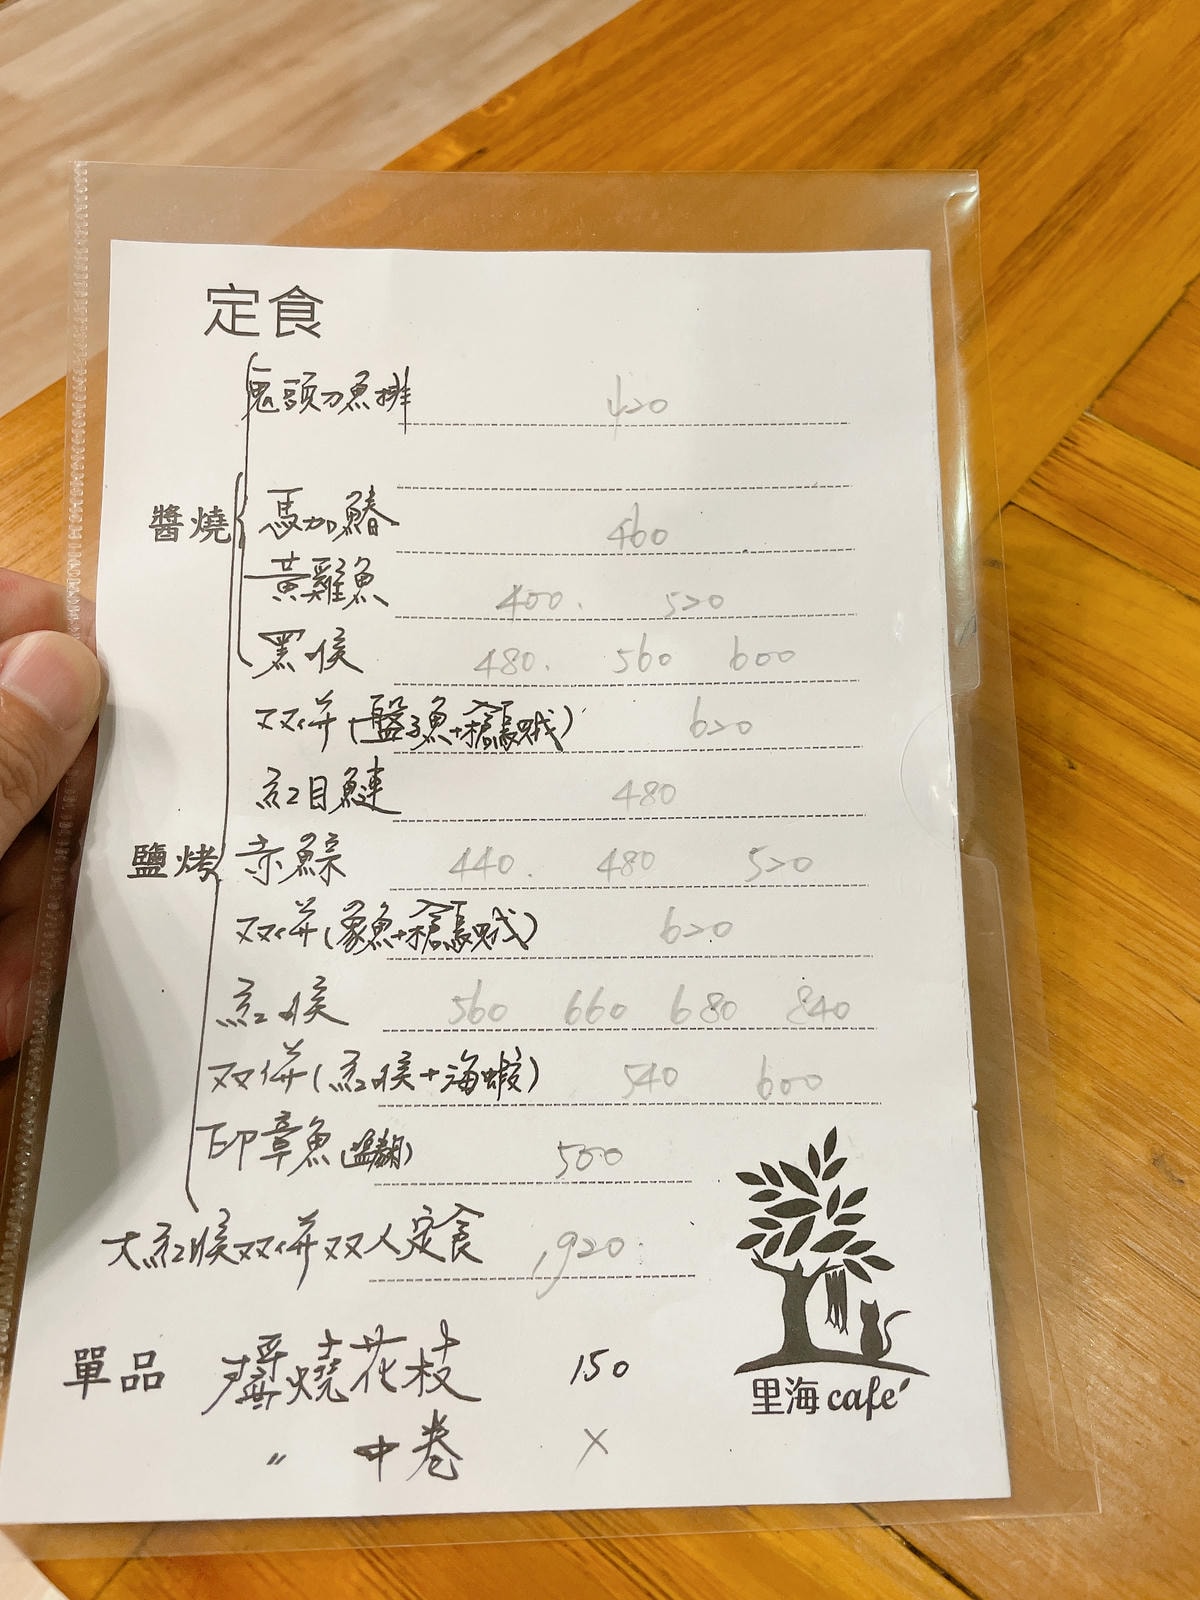 定食
鬼頭刀魚排 420
醬燒 馬加鰆 460
黃雞魚 400. 520
黑喉 480. 560 600
双併(盤子魚+槍烏賊) 620
紅目鰱 480
鹽烤 赤鯮 440. 480 520
双併(象魚+槍烏賊) 620
紅喉 560 660 680 840
双併(紅喉+海蝦) 540 600
印章魚 500
大紅喉双併双人定食 1920
單品 醬燒花枝 150
〃 中卷 X
里海 cafe'